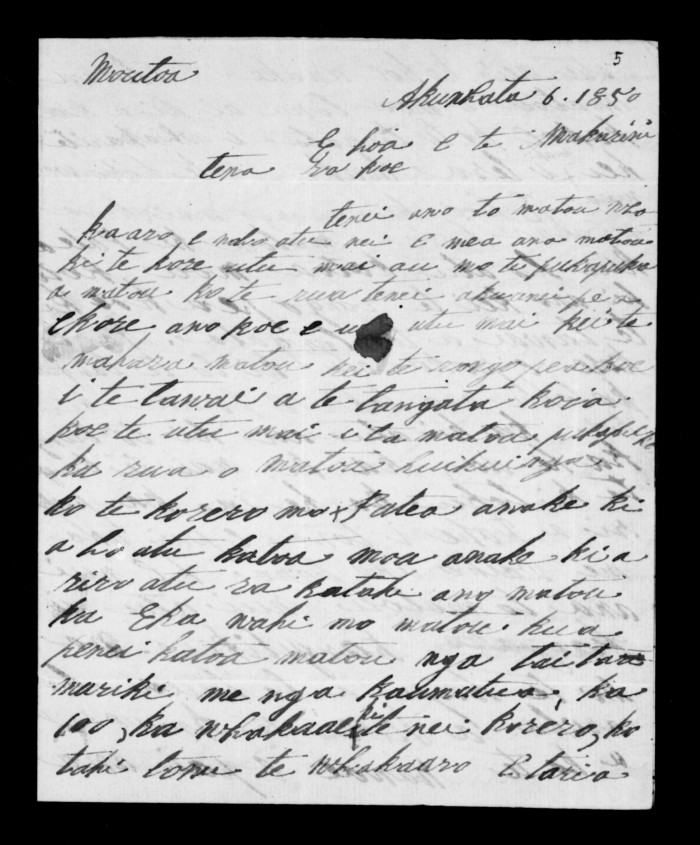 5
Moutoa
Akuhata 6. 1850
E hoa E te Makarini
tena ra koe
tenei ano to matou wa
kaaro e noho atu nei E mea ana matou
ki te kore utu mai au mo te pukapuka
a matou ko te rua tenei akuanei pea
ekore ano koe e utu mai kei te
mahara matou kei te rongo pea koe
i te tawai a te tangata koia
koe te utu mai i ta matou pukapuka
ka rua o matou huihuinga
ko te korero mo Patea anake ki
a ho atu katoa moa anake kia
riro atu ra katahi ano matou
ka Eka wahi mo matou. kua
penei katoa matou nga taita
mariki me nga kaumatua, ka
100, ka whakaae ki te nei korero, ko
tahi tonu te whakaaro E taria